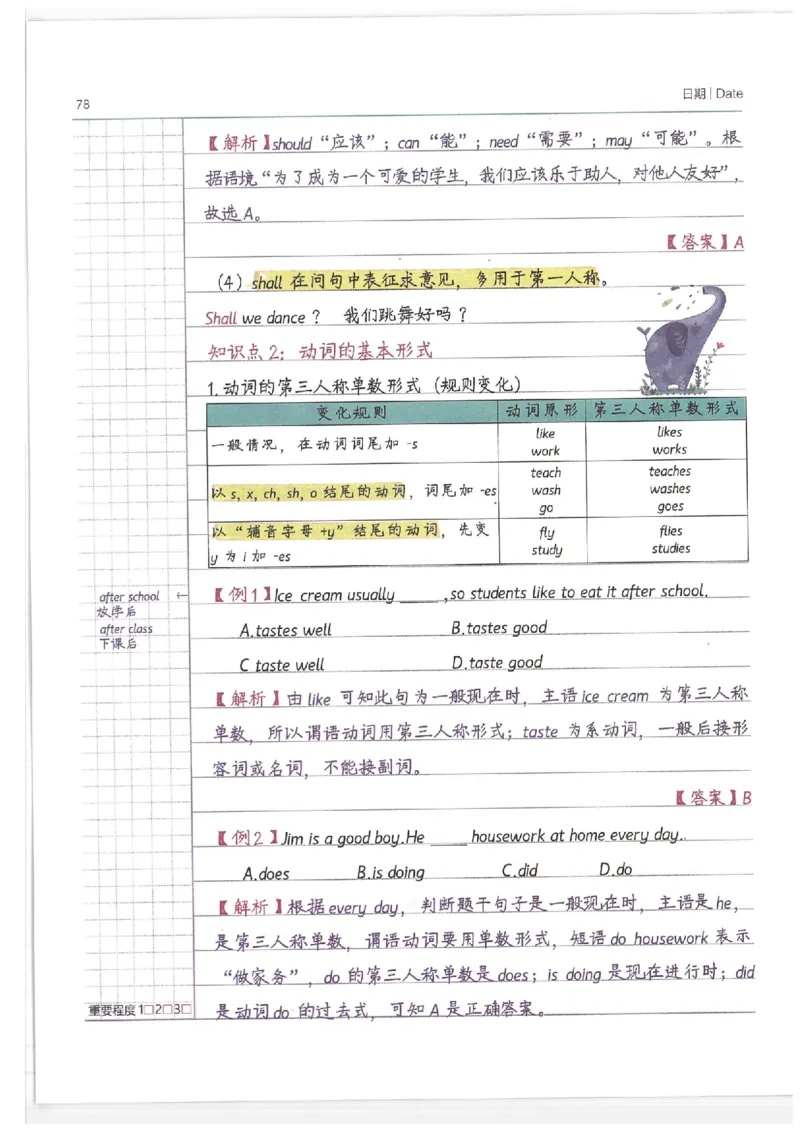 78
日期 | Date
【解析】should“应该”；can“能”；need“需要”；may“可能”。根
据语境“为了成为一个可爱的学生，我们应该乐于助人，对他人友好”，
故选A。
【答案】A
（4）shall 在问句中表征求意见，多用于第一人称。
Shall we dance？ 我们跳舞好吗？
知识点2：动词的基本形式
1.动词的第三人称单数形式（规则变化）
变化规则 动词原形 第三人称单数形式
一般情况，在动词词尾加 -s
like likes
work works
以 s, x, ch, sh, o 结尾的动词，词尾加 -es
teach teaches
wash washes
go goes
以“辅音字母+y”结尾的动词，先变
y 为 i 加 -es
fly flies
study studies
after school ←
放学后
after class
下课后
【例1】Ice cream usually _____,so students like to eat it after school.
A.tastes well B.tastes good
C taste well D.taste good
【解析】由 like 可知此句为一般现在时，主语 ice cream 为第三人称
单数，所以谓语动词用第三人称形式；taste 为系动词，一般后接形
容词或名词，不能接副词。
【答案】B
【例2】Jim is a good boy.He _____ housework at home every day.
A.does B.is doing C.did D.do
【解析】根据 every day，判断题干句子是一般现在时，主语是 he，
是第三人称单数，谓语动词要用单数形式，短语 do housework 表示
“做家务”，do 的第三人称单数是 does；is doing 是现在进行时；did
是动词 do 的过去式，可知 A 是正确答案。
重要程度 1□2□3□